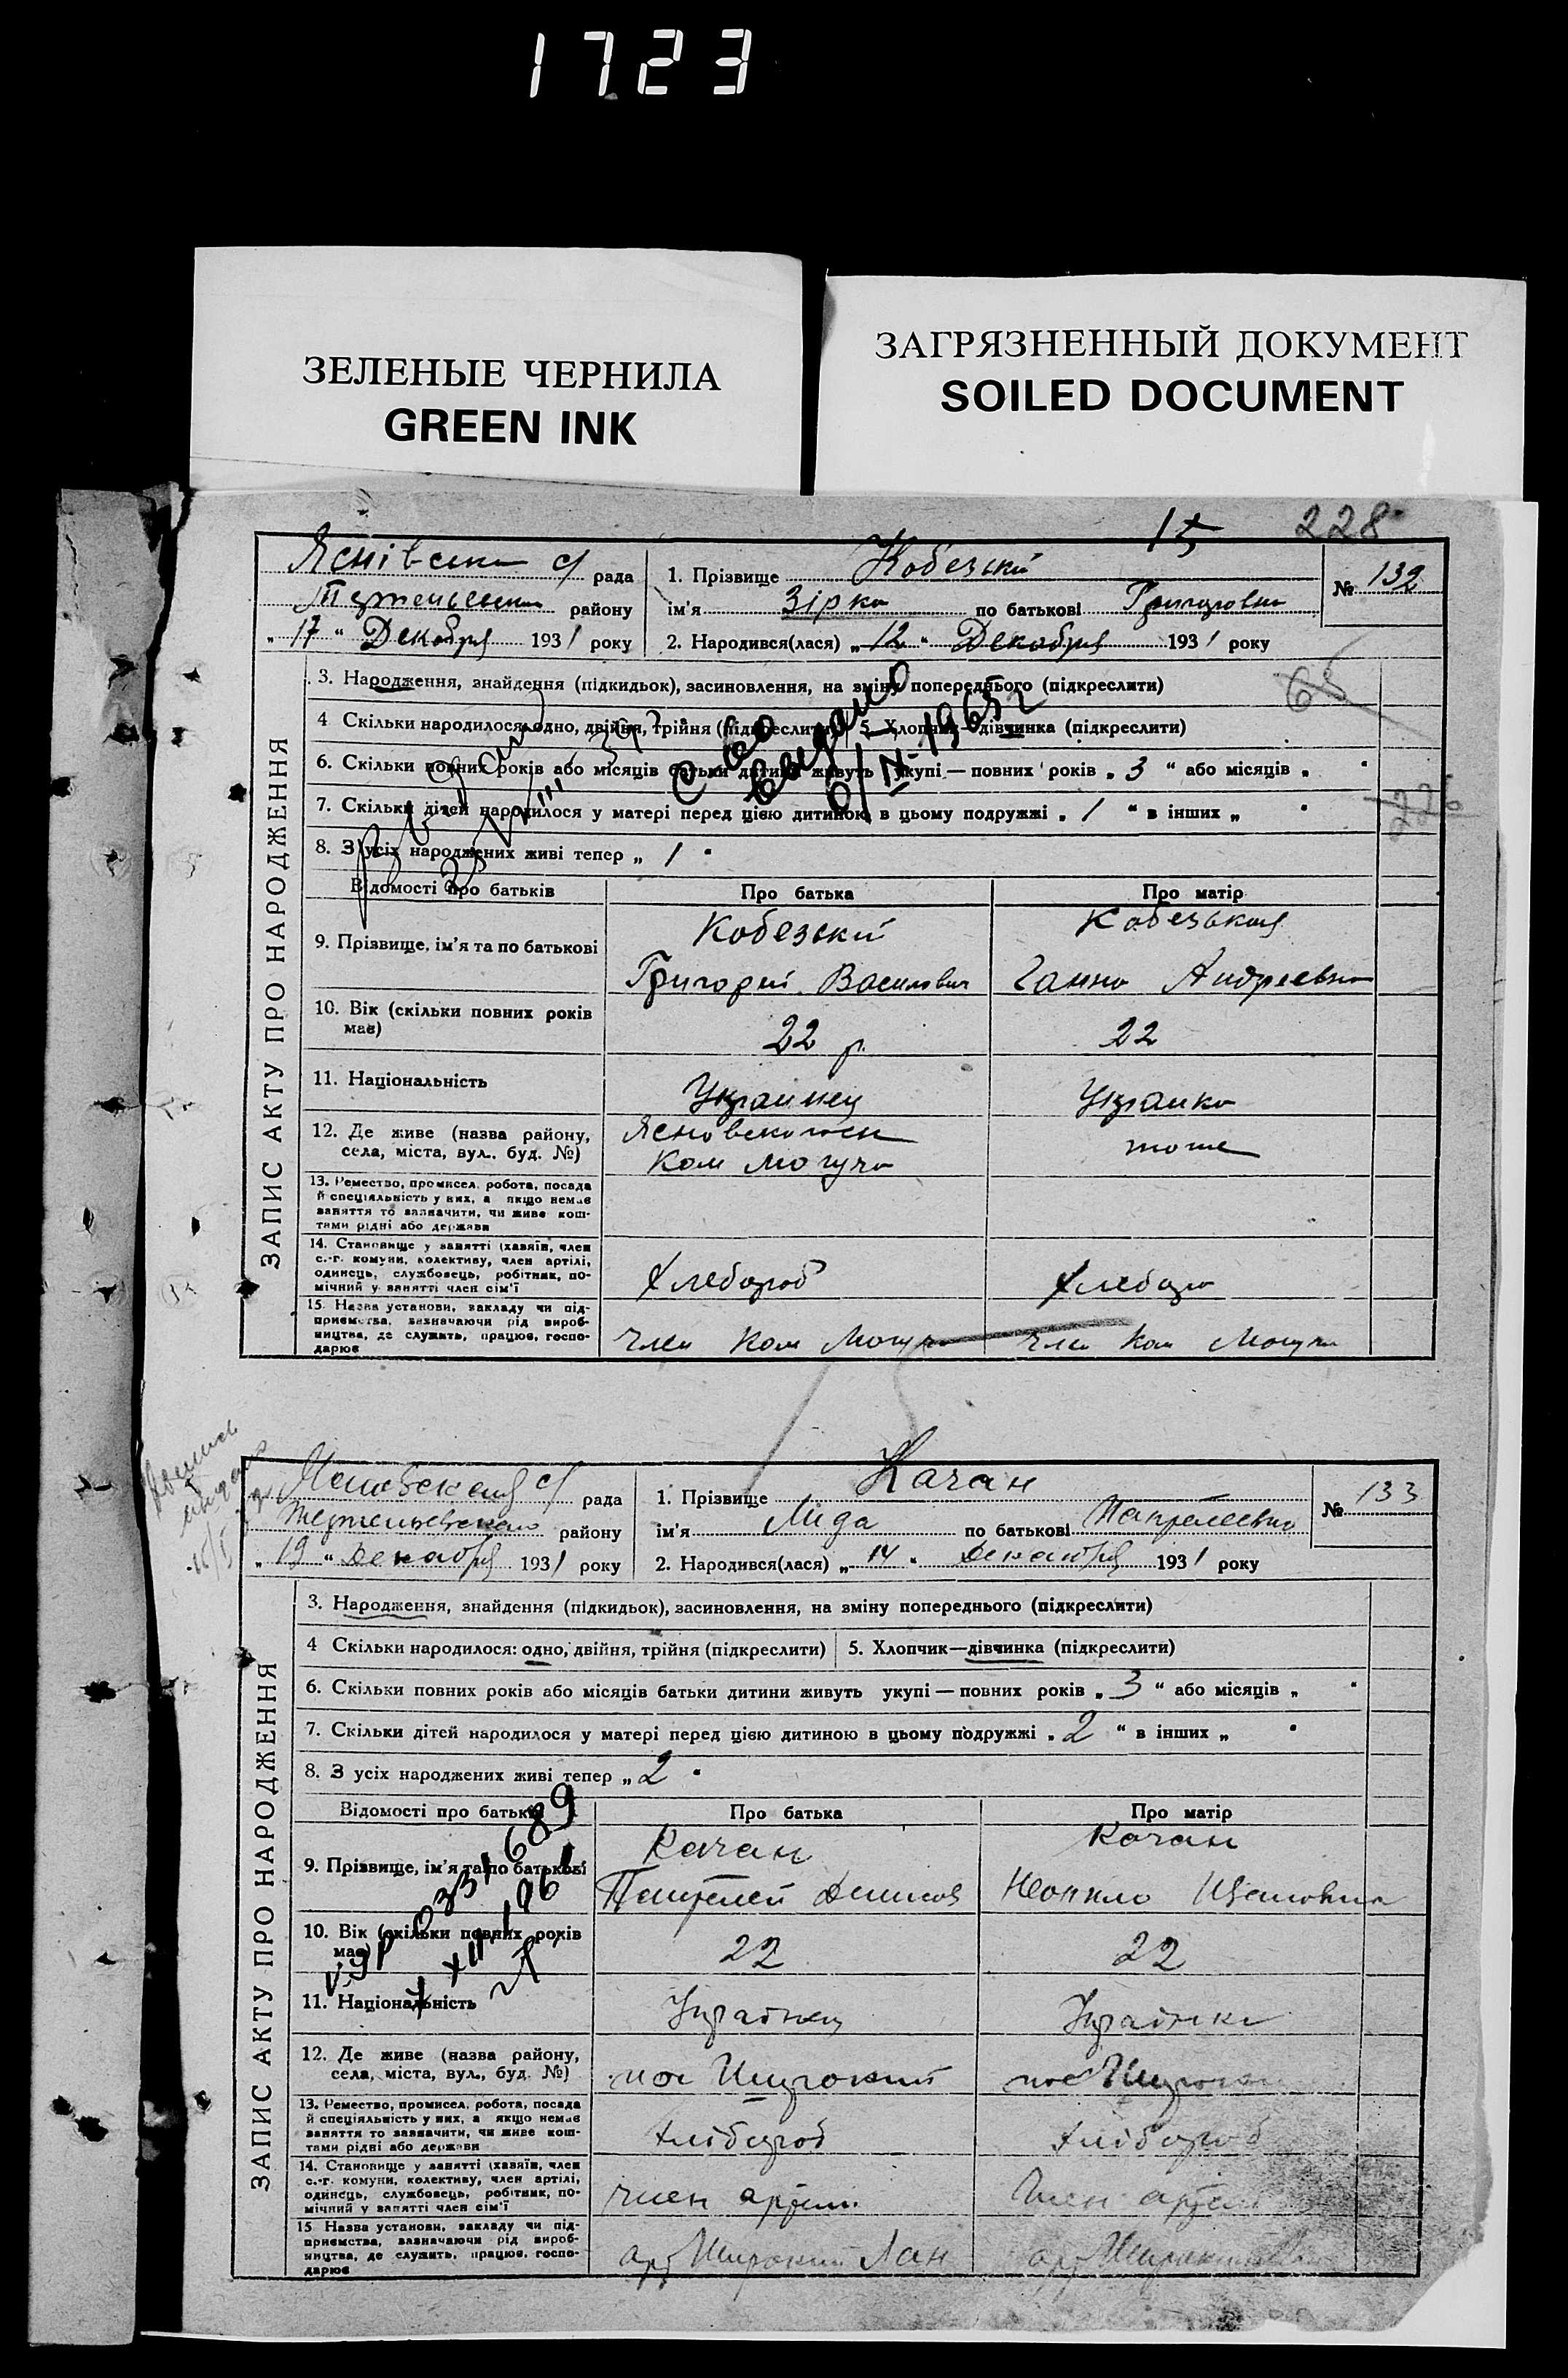 1723
ЗЕЛЕНЫЕ ЧЕРНИЛА
GREEN INK
ЗАГРЯЗНЕННЫЙ ДОКУМЕНТ
SOILED DOCUMENT
15 228
ЗАПИС АКТУ ПРО НАРОДЖЕННЯ
рада
району
„ 17 “ Декабря 1931 року
1. Прізвище Кобезский
ім'я Зірка по батькові Григоровна
2. Народився(лася) „ 12 “ Декабря 1931 року
№ 132
3. Народження, знайдення (підкидьок), засиновлення, на зміну попереднього (підкреслити)
65
4 Скільки народилося: одно, двійня, трійня (підкреслити) 5. Хлопчик—дівчинка (підкреслити)
6. Скільки повних років або місяців батьки дитини живуть укупі — повних років „ 3 “ або місяців „ “
7. Скільки дітей народилося у матері перед цією дитиною в цьому подружжі „ 1 “ в інших „ “
8. З усіх народжених живі тепер „ 1 “
выдано
6/IX-1965 г
Відомості про батьків Про батька Про матір
9. Прізвище, ім'я та по батькові
Кобезский
Григорий Василович
Кобезькая
Ганна Андреевна
10. Вік (скільки повних років має) 22 р. 22
11. Національність Украинец Украинка
12. Де живе (назва району, села, міста, вул., буд. №)
Ком Могуча
тоже
13. Ремество, промисел, робота, посада й спеціяльність у них, а якщо немає заняття то зазначити, чи живе коштами рідні або держави
14. Становище у занятті (хазяїн, член с.-г. комуни, колективу, член артілі, одинець, службовець, робітник, помічний у занятті член сім'ї
Хлебороб
15. Назва установи, закладу чи підприємства, зазначаючи рід виробництва, де служить, працює, господарює
Член Ком Могуча Член Ком Могуча
ЗАПИС АКТУ ПРО НАРОДЖЕННЯ
рада
району
„ 19 “ Декабря 1931 року
1. Прізвище Качан
ім'я Ліда по батькові
2. Народився(лася) „ 14 “ Декабря 1931 року
№ 133
3. Народження, знайдення (підкидьок), засиновлення, на зміну попереднього (підкреслити)
4 Скільки народилося: одно, двійня, трійня (підкреслити) 5. Хлопчик—дівчинка (підкреслити)
6. Скільки повних років або місяців батьки дитини живуть укупі — повних років „ 3 “ або місяців „ “
7. Скільки дітей народилося у матері перед цією дитиною в цьому подружжі „ 2 “ в інших „ “
8. З усіх народжених живі тепер „ 2 “
Відомості про батьків Про батька Про матір
9. Прізвище, ім'я та по батькові
Качан
Качан
10. Вік (скільки повних років має) 22 22
11. Національність Украінец Украінка
12. Де живе (назва району, села, міста, вул., буд. №)
пос Широкий пос
13. Ремество, промисел, робота, посада й спеціяльність у них, а якщо немає заняття то зазначити, чи живе коштами рідні або держави
Хлібороб Хлібороб
14. Становище у занятті (хазяїн, член с.-г. комуни, колективу, член артілі, одинець, службовець, робітник, помічний у занятті член сім'ї
член артели Член артели
15 Назва установи, закладу чи підприємства, зазначаючи рід виробництва, де служить, працює, господарює
арт Широкий Лан